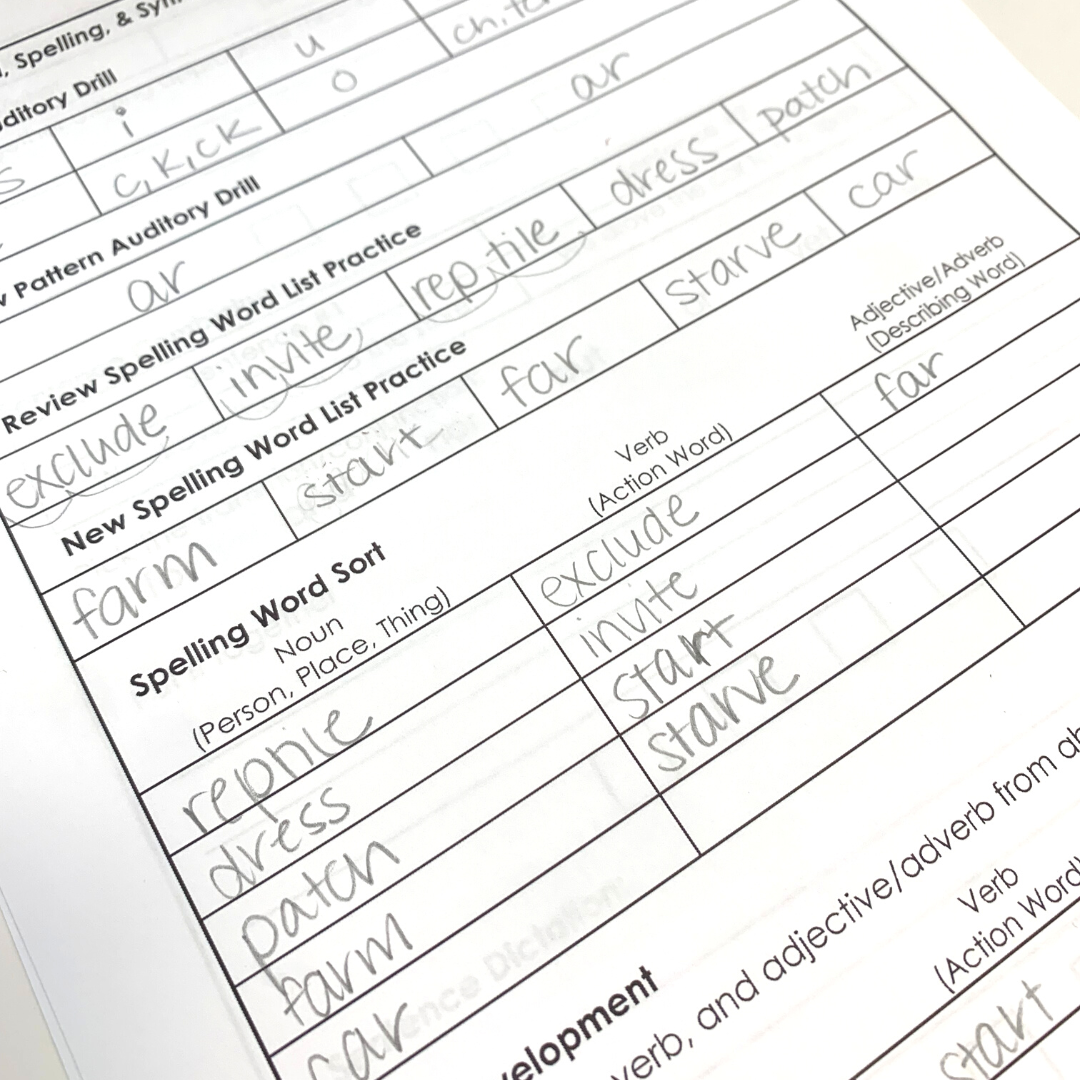 , Spelling, & Syn
uditory Drill
i u ch, tch
s c, k, ck o
Pattern Auditory Drill
ar ar
Review Spelling Word List Practice
exclude invite reptile dress patch
New Spelling Word List Practice
farm start far starve car
Spelling Word Sort
Noun Verb Adjective/Adverb
(Person, Place, Thing) (Action Word) (Describing Word)
reptile exclude far
dress invite
patch start
farm starve
car
ence Dictation
velopment
verb, and adjective/adverb from ab
Verb
(Action Word)
start